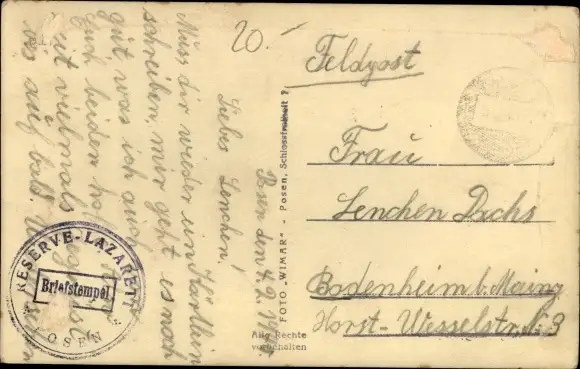 20.-
Feldpost
Frau
Lenchen Dachs
Bodenheim b. Mainz
Horst-Wesselstr. No 3
Posen den 4.2.
Liebes Lenchen!
Muss dir wieder ein
schreiben, mir geht es noch
gut was ich auch
Euch beiden
vielmals
bis auf bald.
FOTO „WIMAR“ - Posen, Schlossfreiheit 7
Alle Rechte
vorbehalten
RESERVE-LAZARETT
Briefstempel
POSEN